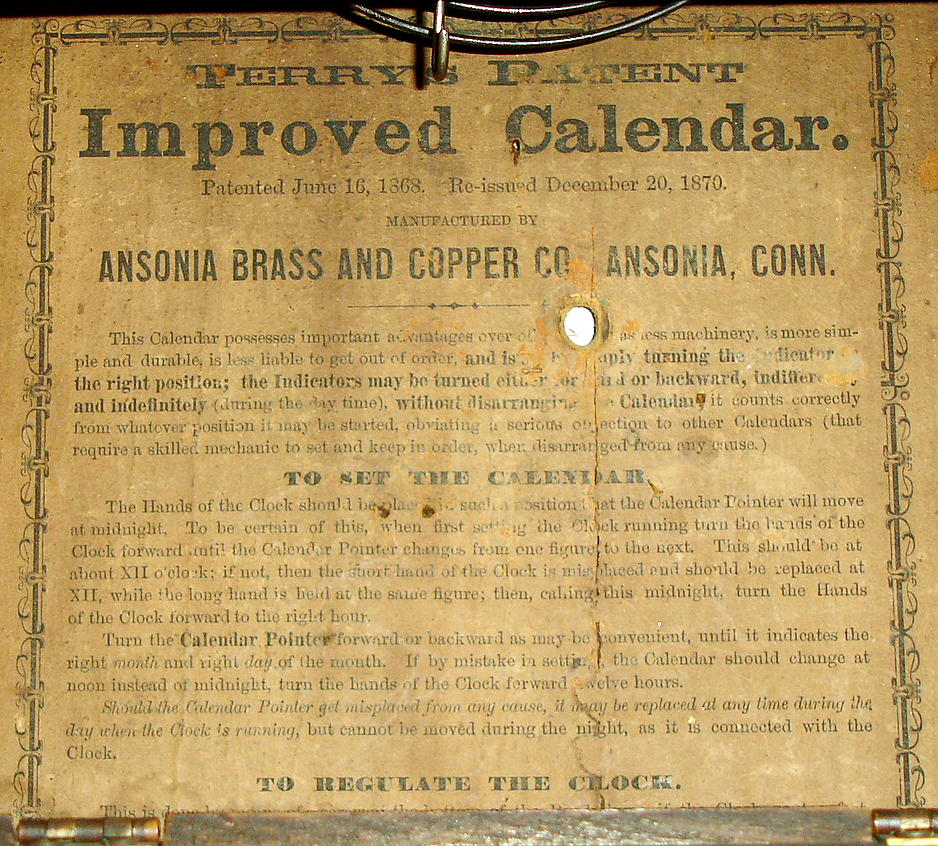 TERRY'S PATENT
Improved Calendar.
Patented June 16, 1868. Re-issued December 20, 1870.
MANUFACTURED BY
ANSONIA BRASS AND COPPER CO ANSONIA, CONN.
This Calendar possesses important advantages over as less machinery, is more sim-
ple and durable, is less liable to get out of order, and is turning the Indicator
the right position; the Indicators may be turned either or backward,
and indefinitely (during the day time), without disarranging Calendar; it counts correctly
from whatever position it may be started, obviating a serious objection to other Calendars (that
require a skilled mechanic to set and keep in order, when disarranged from any cause.)
TO SET THE CALENDAR.
The Hands of the Clock should be placed in such a position that the Calendar Pointer will move
at midnight. To be certain of this, when first setting the Clock running turn the hands of the
Clock forward until the Calendar Pointer changes from one figure to the next. This should be at
about XII o'clock; if not, then the short hand of the Clock is misplaced and should be replaced at
XII, while the long hand is held at the same figure; then, calling this midnight, turn the Hands
of the Clock forward to the right hour.
Turn the Calendar Pointer forward or backward as may be convenient, until it indicates the
right month and right day of the month. If by mistake in setting, the Calendar should change at
noon instead of midnight, turn the hands of the Clock forward twelve hours.
Should the Calendar Pointer get misplaced from any cause, it may be replaced at any time during the
day when the Clock is running, but cannot be moved during the night, as it is connected with the
Clock.
TO REGULATE THE CLOCK.
This is